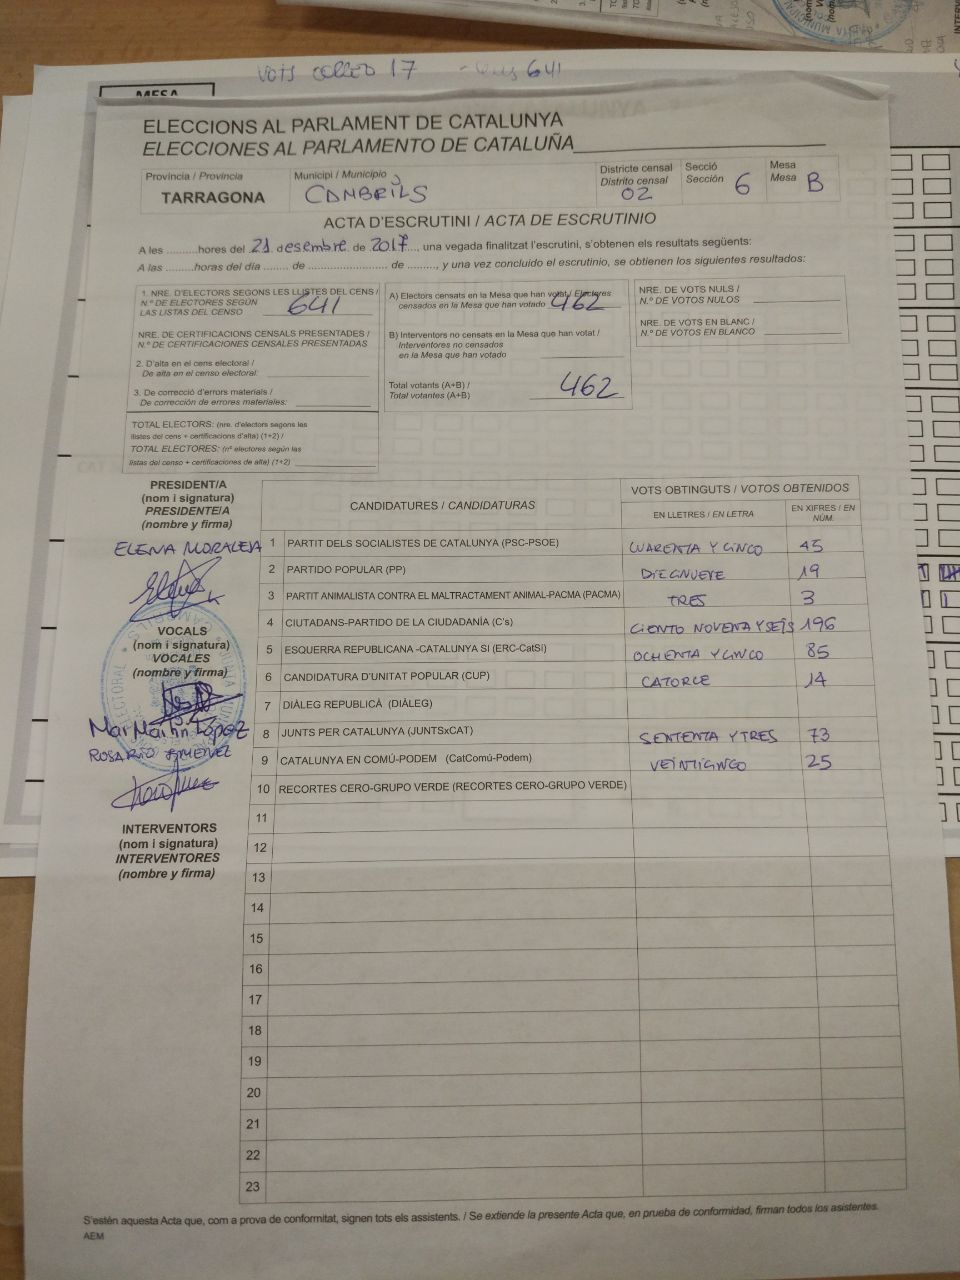 VOTS COLLEO 17 641
MESA
ELECCIONS AL PARLAMENT DE CATALUNYA
ELECCIONES AL PARLAMENTO DE CATALUÑA
Província / Provincia
TARRAGONA
Municipi / Municipio
CAMBRILS
Districte censal
Distrito censal
02
Secció
Sección 6
Mesa
Mesa B
ACTA D'ESCRUTINI / ACTA DE ESCRUTINIO
A les ..........hores del 21 desembre de 2017..., una vegada finalitzat l'escrutini, s'obtenen els resultats següents:
A las .........horas del día ........ de ......................... de ........., y una vez concluido el escrutinio, se obtienen los siguientes resultados:
1. NRE. D'ELECTORS SEGONS LES LLISTES DEL CENS /
N.º DE ELECTORES SEGÚN
LAS LISTAS DEL CENSO 641
NRE. DE CERTIFICACIONS CENSALS PRESENTADES /
N.º DE CERTIFICACIONES CENSALES PRESENTADAS
2. D'alta en el cens electoral /
De alta en el censo electoral:
3. De correcció d'errors materials /
De corrección de errores materiales:
TOTAL ELECTORS: (nre. d'electors segons les
llistes del cens + certificacions d'alta) (1+2) /
TOTAL ELECTORES: (nº electores según las
listas del censo + certificaciones de alta) (1+2)
A) Electors censats en la Mesa que han votat / Electores
censados en la Mesa que han votado 462
B) Interventors no censats en la Mesa que han votat /
Interventores no censados
en la Mesa que han votado
Total votants (A+B) /
Total votantes (A+B) 462
NRE. DE VOTS NULS /
N.º DE VOTOS NULOS
NRE. DE VOTS EN BLANC /
N.º DE VOTOS EN BLANCO
PRESIDENT/A
(nom i signatura)
PRESIDENTE/A
(nombre y firma)
ELENA MORALEJA
VOCALS
(nom i signatura)
VOCALES
(nombre y firma)
Mar Martín López
ROSARIO JIMENEZ
INTERVENTORS
(nom i signatura)
INTERVENTORES
(nombre y firma)
CANDIDATURES / CANDIDATURAS
VOTS OBTINGUTS / VOTOS OBTENIDOS
EN LLETRES / EN LETRA
EN XIFRES / EN
NÚM.
1 PARTIT DELS SOCIALISTES DE CATALUNYA (PSC-PSOE) CUARENTA Y CINCO 45
2 PARTIDO POPULAR (PP) DIECINUEVE 19
3 PARTIT ANIMALISTA CONTRA EL MALTRACTAMENT ANIMAL-PACMA (PACMA) TRES 3
4 CIUTADANS-PARTIDO DE LA CIUDADANÍA (C's) CIENTO NOVENA Y SEIS 196
5 ESQUERRA REPUBLICANA -CATALUNYA SÍ (ERC-CatSí) OCHENTA Y CINCO 85
6 CANDIDATURA D'UNITAT POPULAR (CUP) CATORCE 14
7 DIÀLEG REPUBLICÀ (DIÀLEG)
8 JUNTS PER CATALUNYA (JUNTSxCAT) SENTENTA Y TRES 73
9 CATALUNYA EN COMÚ-PODEM (CatComú-Podem) VEINTICINCO 25
10 RECORTES CERO-GRUPO VERDE (RECORTES CERO-GRUPO VERDE)
11
12
13
14
15
16
17
18
19
20
21
22
23
S'estén aquesta Acta que, com a prova de conformitat, signen tots els assistents. / Se extiende la presente Acta que, en prueba de conformidad, firman todos los asistentes.
AEM